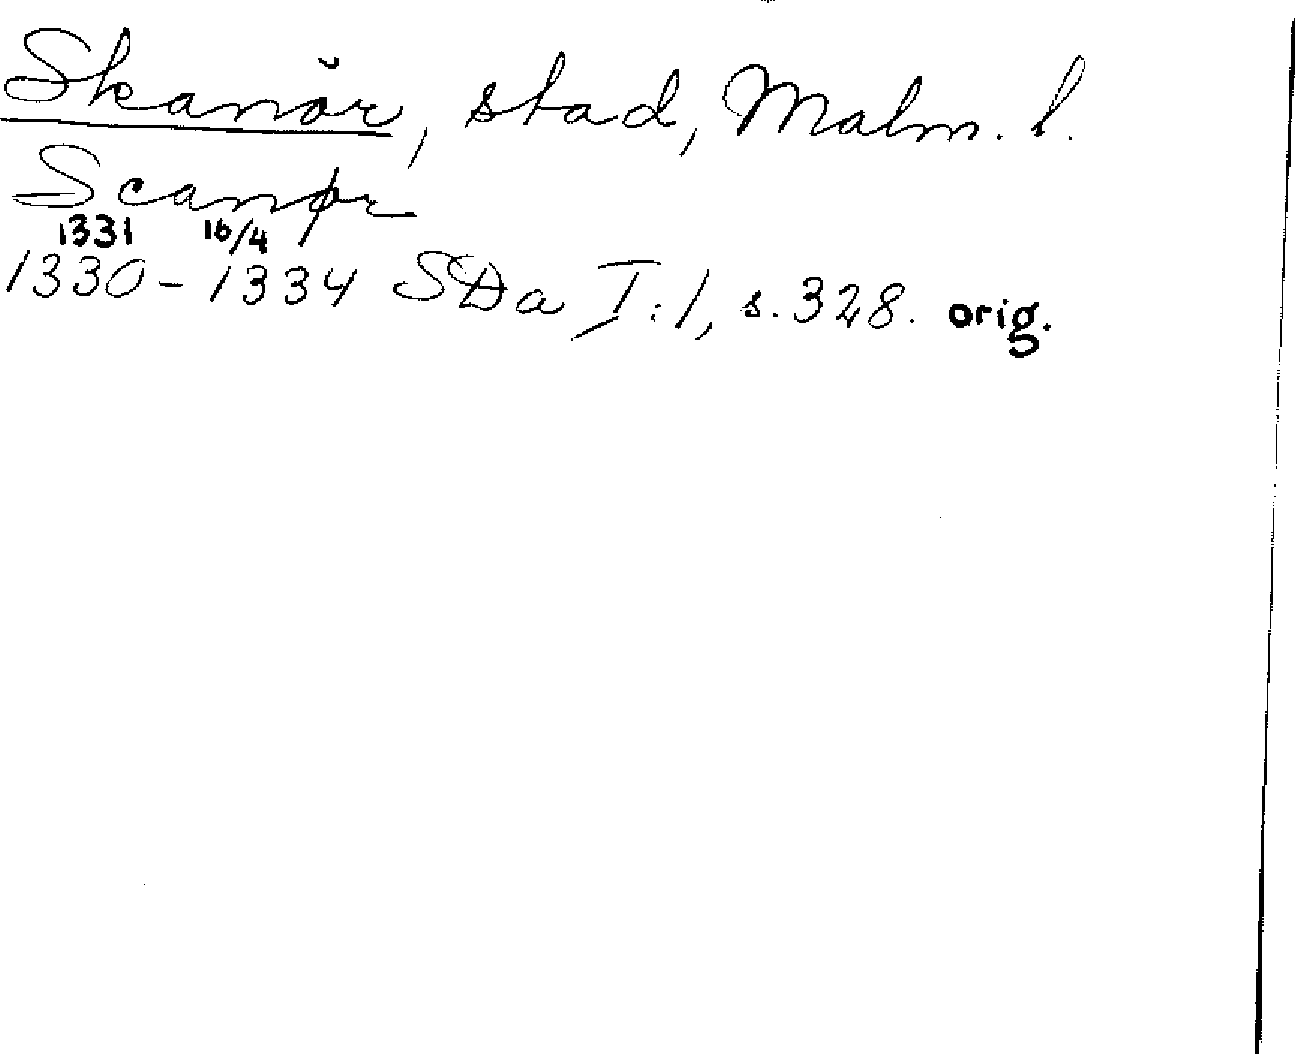 Skanör, stad, Malm. l.
Scanør
1331 16/4
1330-1334 SDa I:1, s. 328. orig.